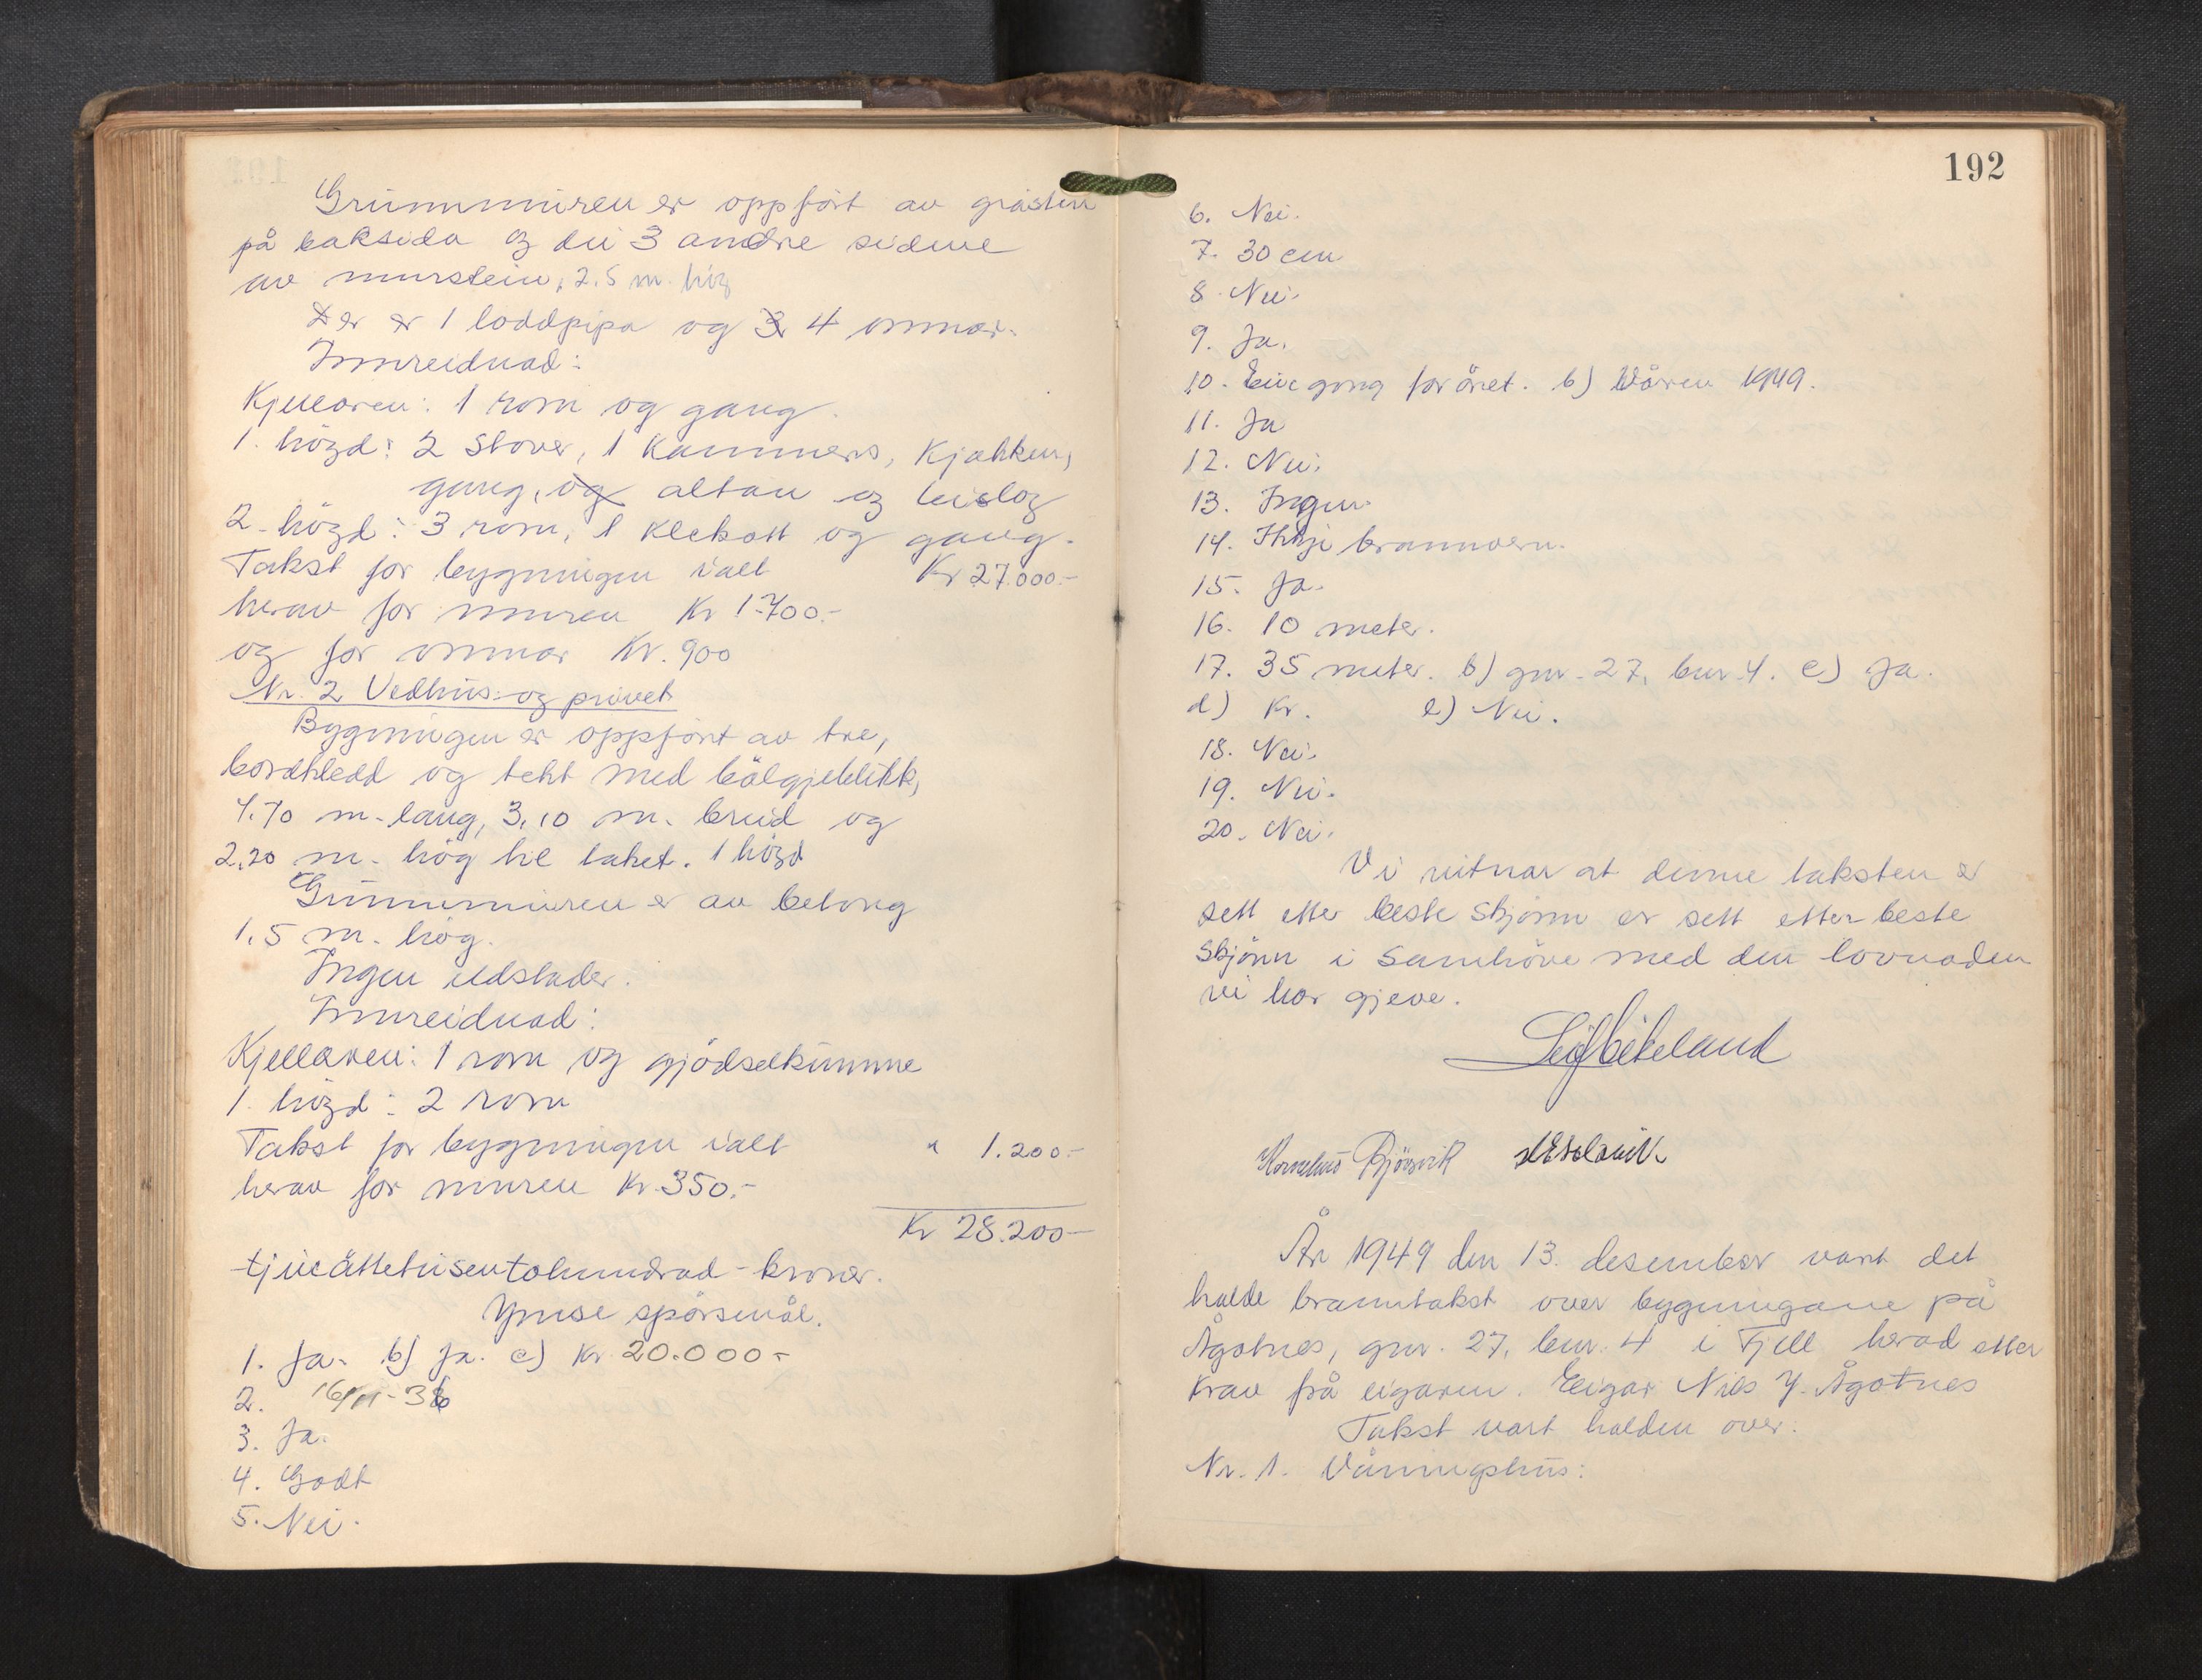 Grunnmuren er oppfört av gråstein
på baksida og dei 3 andre sidene
av murstein, 2.5 m. hög
Der er 1 loddpipa og 3 4 omnar.
Innreidnad:
Kjellaren: 1 rom og gang.
1. högd: 2 Stover, 1 Kammers, Kjøkken,
gang, og altan og beislog
2. högd: 3 rom, 1 Klekott og gang.
Takst for bygningen ialt Kr 27.000.-
herav for muren Kr 1.700.-
og for omnar Kr. 900
Nr. 2 Vedhus og privet
Bygningen er oppfört av tre,
bordkledd og tekt med bölgjeblikk,
4.70 m. lang, 3,10 m. breid og
2,20 m. hög til taket. 1 högd
Grunnmuren er av betong
1,5 m. hög.
Ingen eldstader.
Innreidnad:
Kjellaren: 1 rom og gjödselkumme
1. högd: 2 rom
Takst for bygningen ialt " 1.200.-
herav for muren Kr. 350.-
Kr 28.200-
tjueåttetusentohundrad - kroner.
Ymse spörsmål.
1. Ja. b) Ja. c) Kr. 20.000.-
2. 16/11-36
3. Ja.
4. Godt
5. Nei.
192
6. Nei.
7. 30 cm
8. Nei.
9. Ja.
10. Ein gong for året. b) Våren 1949.
11. Ja
12. Nei.
13. Ingen.
14. Ikkje brannvern.
15. Ja.
16. 10 meter.
17. 35 meter. b) gnr. 27, bnr. 4. c) Ja.
d) Kr. e) Nei.
18. Nei.
19. Nei.
20. Nei.
Vi vitnar at denne taksten er
sett etter beste Skjönn er sett etter beste
Skjönn i Samhöve med den lovnaden
vi har gjeve.
Leif Bikeland
Kornelius Bjørsvik
År 1949 den 13. desember vart det
halde branntakst over bygningane på
Ågotnes, gnr. 27, bnr. 4 i Fjell herad etter
Krav frå eigaren. Eigar Nils Y. Ågotnes
Takst vart halden over:
Nr. 1. Våningshus: